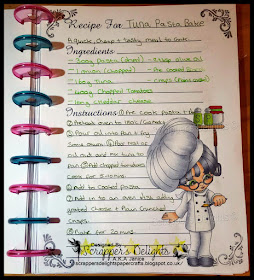 Recipe For Tuna Pasta Bake
A Quick, Cheap & Tasty meal to make
Ingredients
- 300g Pasta (dried) - 1 tbsp olive oil
- 1 onion (chopped) - Pre Cooked
- 160g Tuna - Crisps
- 400g Chopped Tomatoes
- 100g cheddar cheese
Instructions ① Pre Cook pasta &
② Preheat oven to
③ Pour oil into Pan & fry
Some onions ④ Pour
oil out and mix tuna to
pan ⑤ Add chopped tomatoes
Cook for 5 mins
⑥ Add to Cooked pasta
⑦ Add in to an oven dish adding
grated Cheese &
Crisps.
⑧ Bake for 20 mins.
Scrapper's Delights
A.K.A Janice
scrappersdelightspapercrafts.blogspot.co.uk